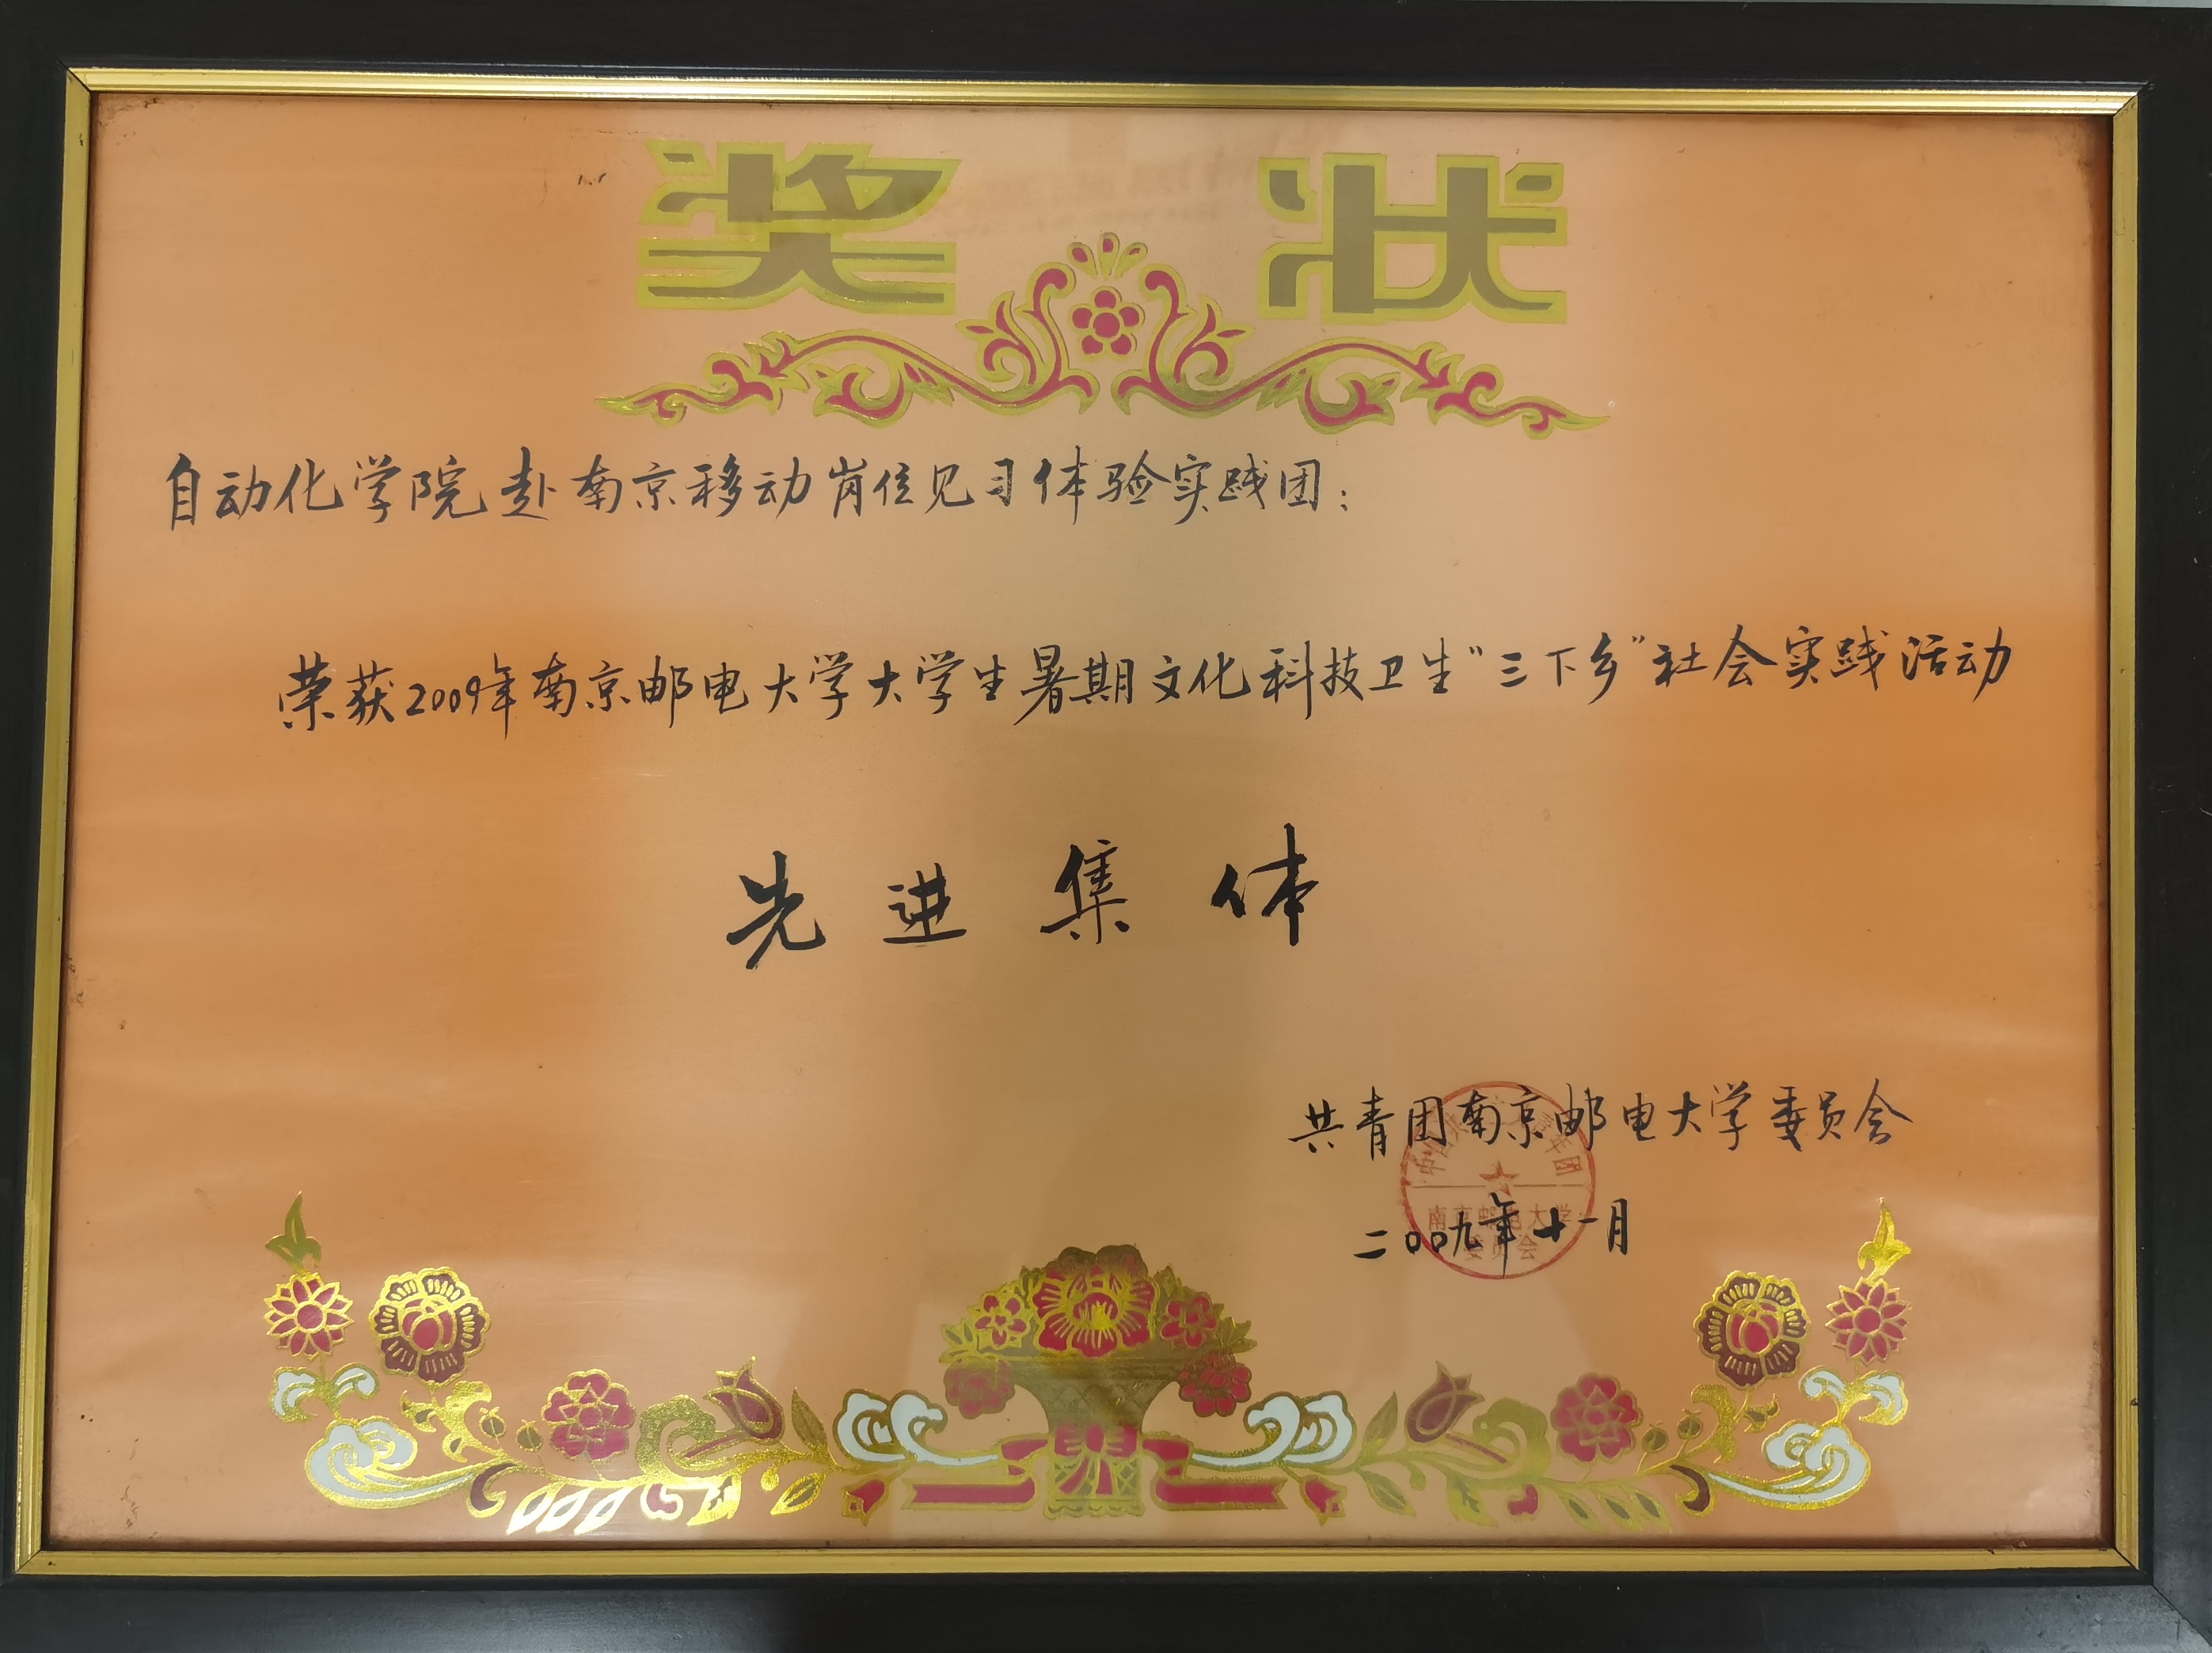 奖状
自动化学院赴南京移动岗位见习体验实践团：
荣获2009年南京邮电大学大学生暑期文化科技卫生“三下乡”社会实践活动
先进集体
共青团南京邮电大学委员会
二00九年十一月
南京邮电大学
委员会